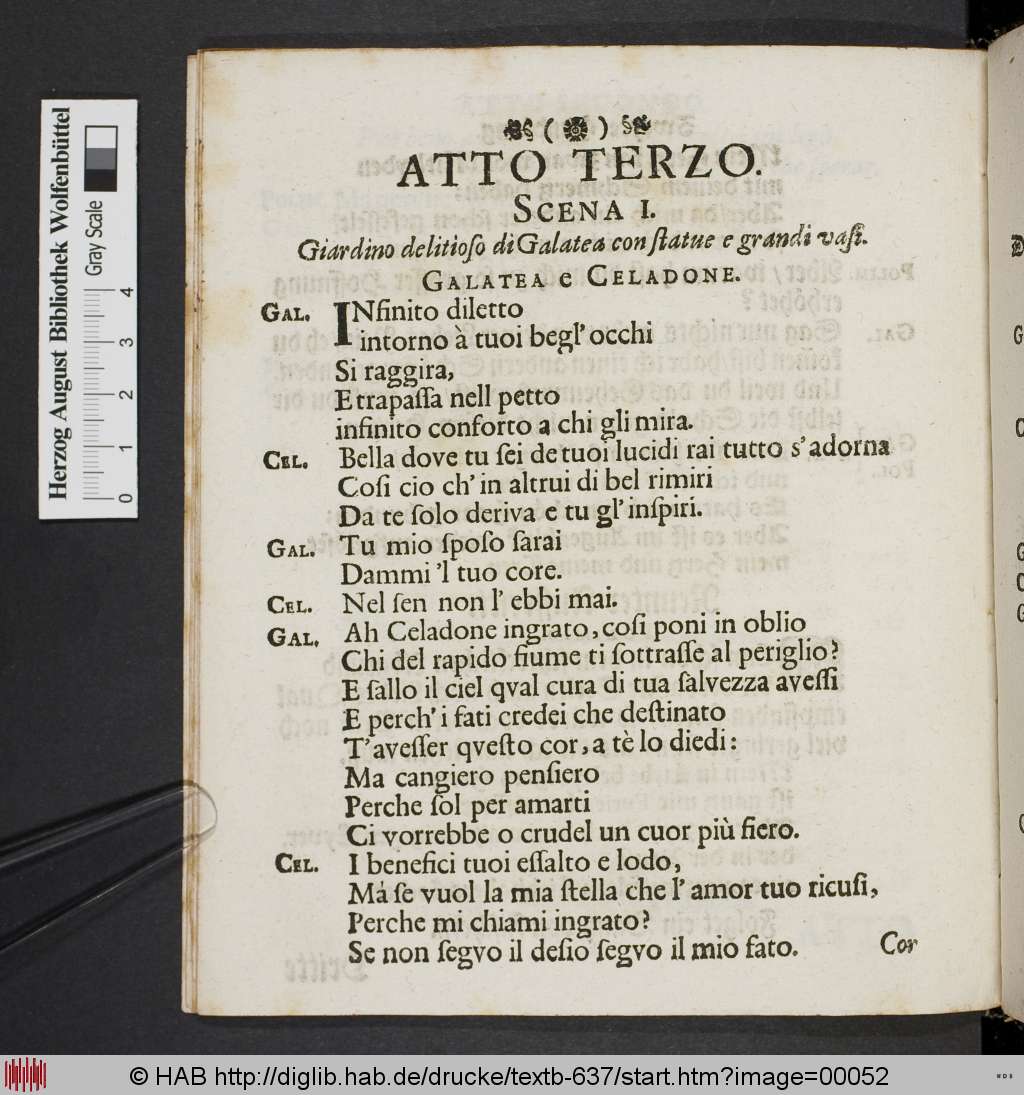 ( )
ATTO TERZO.
SCENA I.
Giardino delitioſo di Galatea con ſtatue e grandi vaſi.
GALATEA e CELADONE.
GAL. INfinito diletto
intorno à tuoi begl' occhi
Si raggira,
E trapaſſa nell petto
infinito conforto a chi gli mira.
CEL. Bella dove tu ſei de tuoi lucidi rai tutto s' adorna
Coſi cio ch' in altrui di bel rimiri
Da te ſolo deriva e tu gl' inſpiri.
GAL. Tu mio ſpoſo ſarai
Dammi 'l tuo core.
CEL. Nel ſen non l' ebbi mai.
GAL. Ah Celadone ingrato, coſi poni in oblio
Chi del rapido fiume ti ſottraſſe al periglio?
E ſallo il ciel qval cura di tua ſalvezza aveſſi
E perch' i fati credei che deſtinato
T' aveſſer qveſto cor, a tè lo diedi:
Ma cangiero penſiero
Perche ſol per amarti
Ci vorrebbe o crudel un cuor più fiero.
CEL. I benefici tuoi eſſalto e lodo,
Má ſe vuol la mia ſtella che l' amor tuo ricuſi,
Perche mi chiami ingrato?
Se non ſegvo il deſio ſegvo il mio fato.
Cor
Herzog August Bibliothek Wolfenbüttel
Gray Scale
0 1 2 3 4
© HAB http://diglib.hab.de/drucke/textb-637/start.htm?image=00052